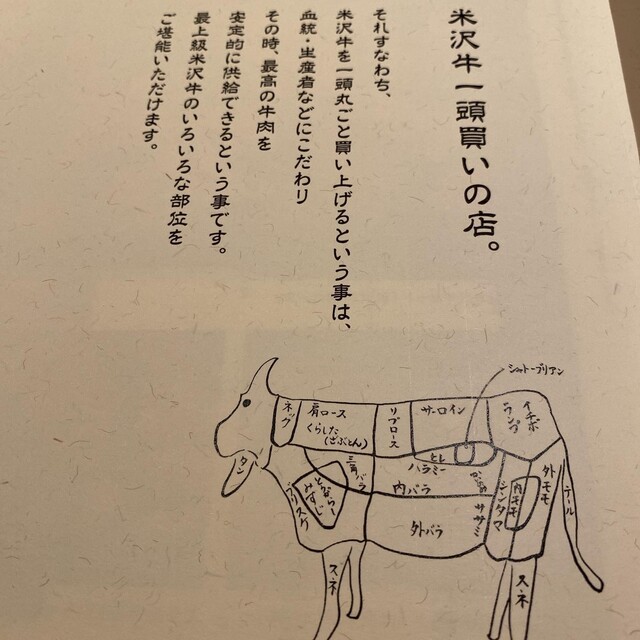 米沢牛一頭買いの店。
それすなわち、
米沢牛を一頭丸ごと買い上げるという事は、
血統・生産者などにこだわり
その時、最高の牛肉を
安定的に供給できるという事です。
最上級米沢牛のいろいろな部位を
ご堪能いただけます。
シャトーブリアン
ネック
肩ロース
くらした
(ざぶとん)
リブロース
サーロイン
イチボ
ランプ
タン
ヒレ
ハラミー
三角バラ
内バラ
外バラ
ササミ
ブリスケ
とうがらし
みすじ
シンタマ
内モモ
外モモ
テール
スネ
スネ